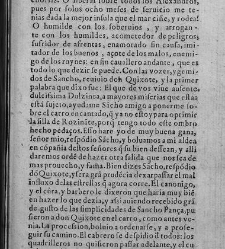 pues por solos ocho meses de seruicio me te-
nias dada la mejor insula que el mar ciñe, y rodea!
O humilde con los soberuios, y arrogan-
te con los humildes, acometedor de peligros,
sufridor de afrentas, enamorado sin causa, imi-
tador de los buenos, açote de los malos, enemi-
go de los ruynes: en fin cauallero andante, que es
todo lo que dezir se puede. Con las vozes, y gemi-
dos de Sancho, reuiuio don Quixote, y la primer
palabra que dixo fue: El que de vos viue ausente,
dulcissima Dulzinea, a mayores miserias que estas
está sujeto, ayudame Sancho amigo a ponerme so-
bre el carro encantado, q̃ ya no estoy para oprimir
la silla de Rozinãte, porq̃ tengo todo este ombro
hecho pedaços. Esso haré yo de muy buena gana,
señor mio, respõdio Sãcho, y boluamos a mi aldea
en cõpañia destos señores q̃ su bien dessean, y alli
daremos ordẽ de hazer otra salida que nos sea de
mas prouecho, y fama. Bien dizes Sãcho, respõdio
dõ Quixote, y sera grã prudẽcia dexar passar el mal
influxo de las estrellas q̃ agora corre. El canonigo,
y el cura, y barbero le dixeron que haria muy bien
en hazer lo que dezia, y assi auiendo recebido grã-
de gusto de las simplicidades de Sancho Pança, pu-
sieron a don Quixote en el carro, como antes ve-
nia. La procession, boluio a ordenarse, y a prose-
guir su camino. El cabrero se despidio de todos: los
quadrilleros no quisieron passar adelante, y el cu-